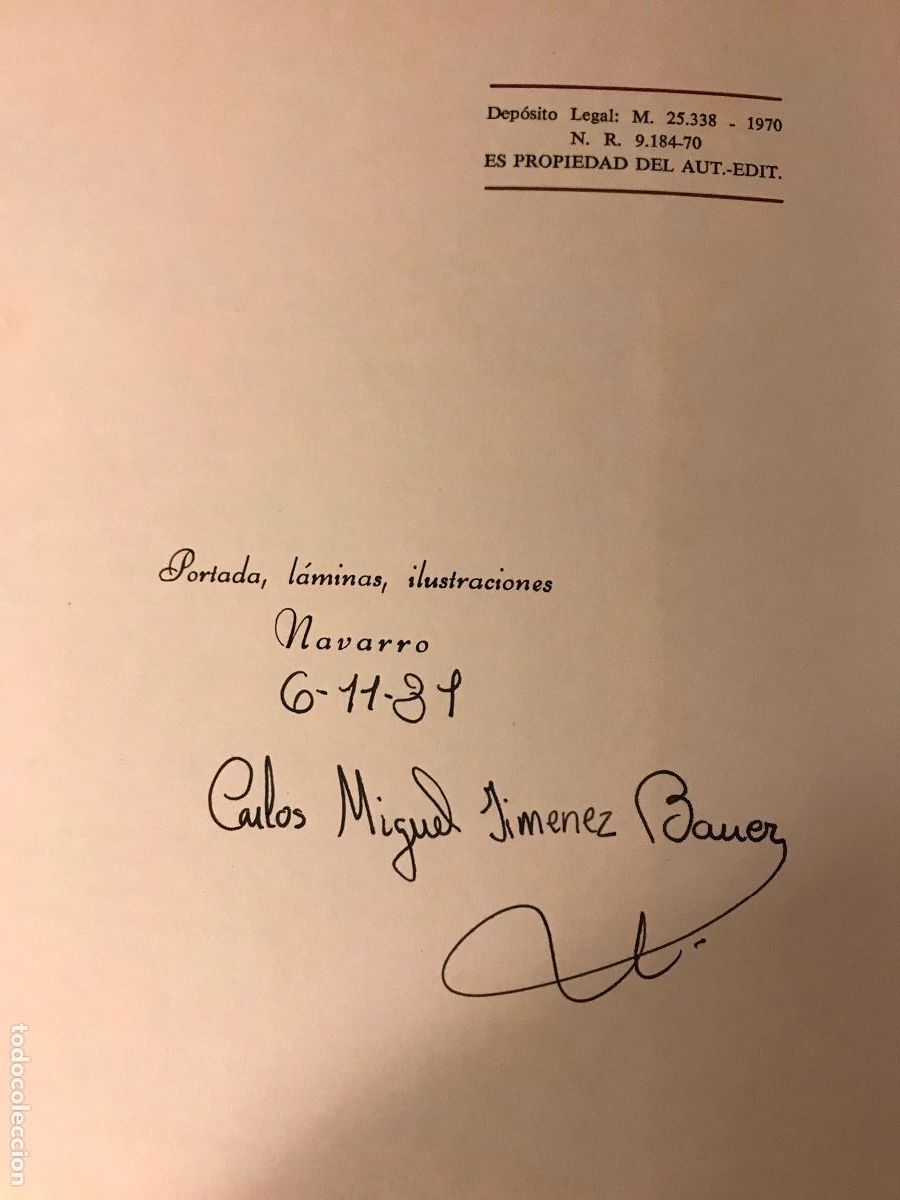 Depósito Legal: M. 25.338 - 1970
N. R. 9.184-70
ES PROPIEDAD DEL AUT.-EDIT.
Portada, láminas, ilustraciones
Navarro
6-11-81
Carlos Miguel Jimenez Bauer
todocoleccion